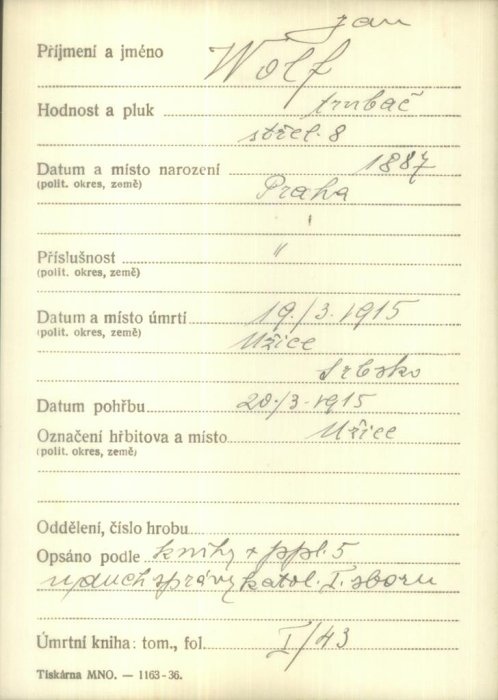 Jan
Příjmení a jméno Wolf
Hodnost a pluk trubač
střel. 8
Datum a místo narození 1887
(polit. okres, země) Praha
Příslušnost "
(polit. okres, země)
Datum a místo úmrtí 19./3. 1915
(polit. okres, země) Užice
Srbsko
Datum pohřbu 20./3. 1915
Označení hřbitova a místo Užice
(polit. okres, země)
Oddělení, číslo hrobu
Opsáno podle knihy + ppl. 5
duch správy katol. I. sboru
Úmrtní kniha: tom., fol. I/43
Tiskárna MNO. — 1163-36.